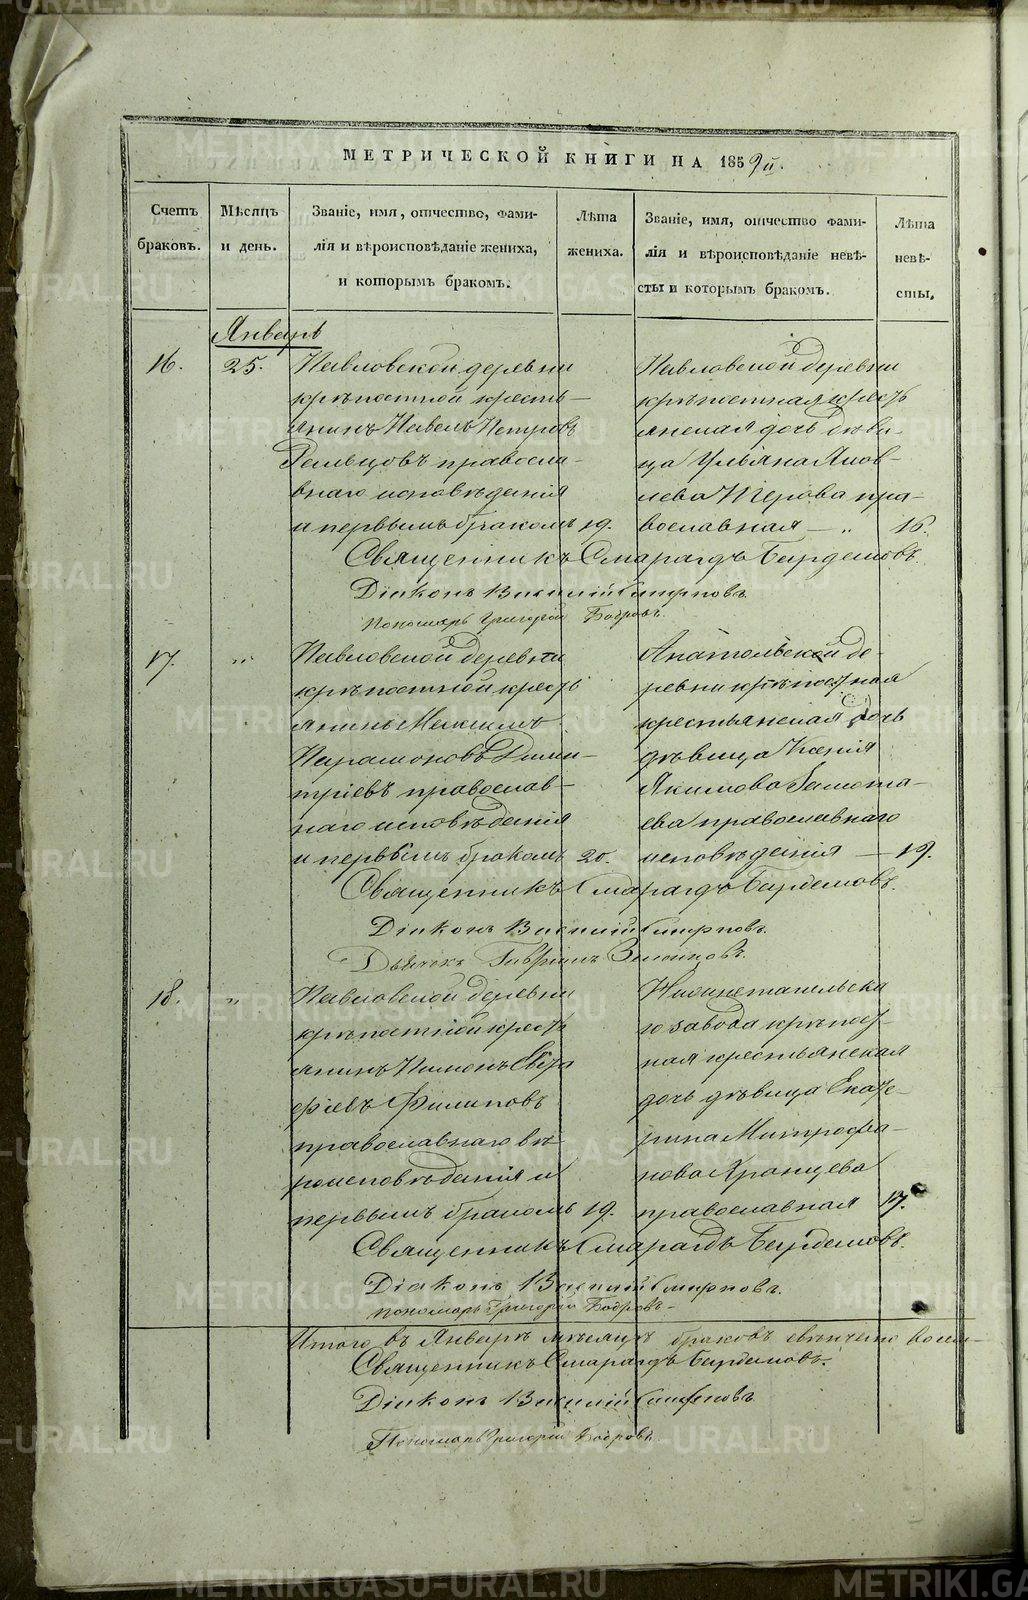 МЕТРИЧЕСКОЙ КНИГИ НА 1859й.
Счетъ браковъ.
Мѣсяцъ и день.
Званіе, имя, отчество, фами-
лія и вѣроисповѣданіе жениха,
и которымъ бракомъ.
Лѣта жениха.
Званіе, имя, отчество фами-
лія и вѣроисповѣданіе невѣ-
сты и которымъ бракомъ.
Лѣта невѣ-
сты.
Январь
16. 25.
Павловской деревни
крѣпостной кресть-
янинъ Павелъ Петровъ
православ-
наго исповѣданія
и первымъ бракомъ 19.
Павловской деревни
крѣпостная кресть
янская дочь дѣви-
ца Ульяна Яков-
лева пра-
вославная — „ 16.
Священникъ Смарагдъ Бирдемовъ.
Діаконъ Василій Смирновъ.
Пономарь Григорій Бобровъ.
17. „
Павловской деревни
крѣпостной кресть
янинъ Максимъ
Парамоновъ Дими-
тріевъ православ-
наго исповѣданія
и первымъ бракомъ 20.
Анатольской де-
ревни крѣпостная
крестьянская дочь
дѣвица Ксенія
Якимова
ева православнаго
исповѣданія — 19.
Священникъ Смарагдъ Бирдемовъ.
Діаконъ Василій Смирновъ.
Дьячекъ Гавріилъ
18. „
Павловской деревни
крѣпостной кресть
янинъ Пименъ Евста
фіевъ Филиповъ
православнаго вѣ-
роисповѣданія и
первымъ бракомъ 19.
Нижнетагильска
го завода крѣпост-
ная крестьянская
дочь дѣвица Екате-
рина Митрофа-
нова
православная 17.
Священникъ Смарагдъ Бирдемовъ.
Діаконъ Василій Смирновъ.
Пономарь Григорій Бобровъ.
Итого въ Январѣ мѣсяцѣ браковъ свѣнчано
Священникъ Смарагдъ Бирдемовъ.
Діаконъ Василій Смирновъ
Пономарь Григорій Бобровъ.
METRIKI.GASO-URAL.RU